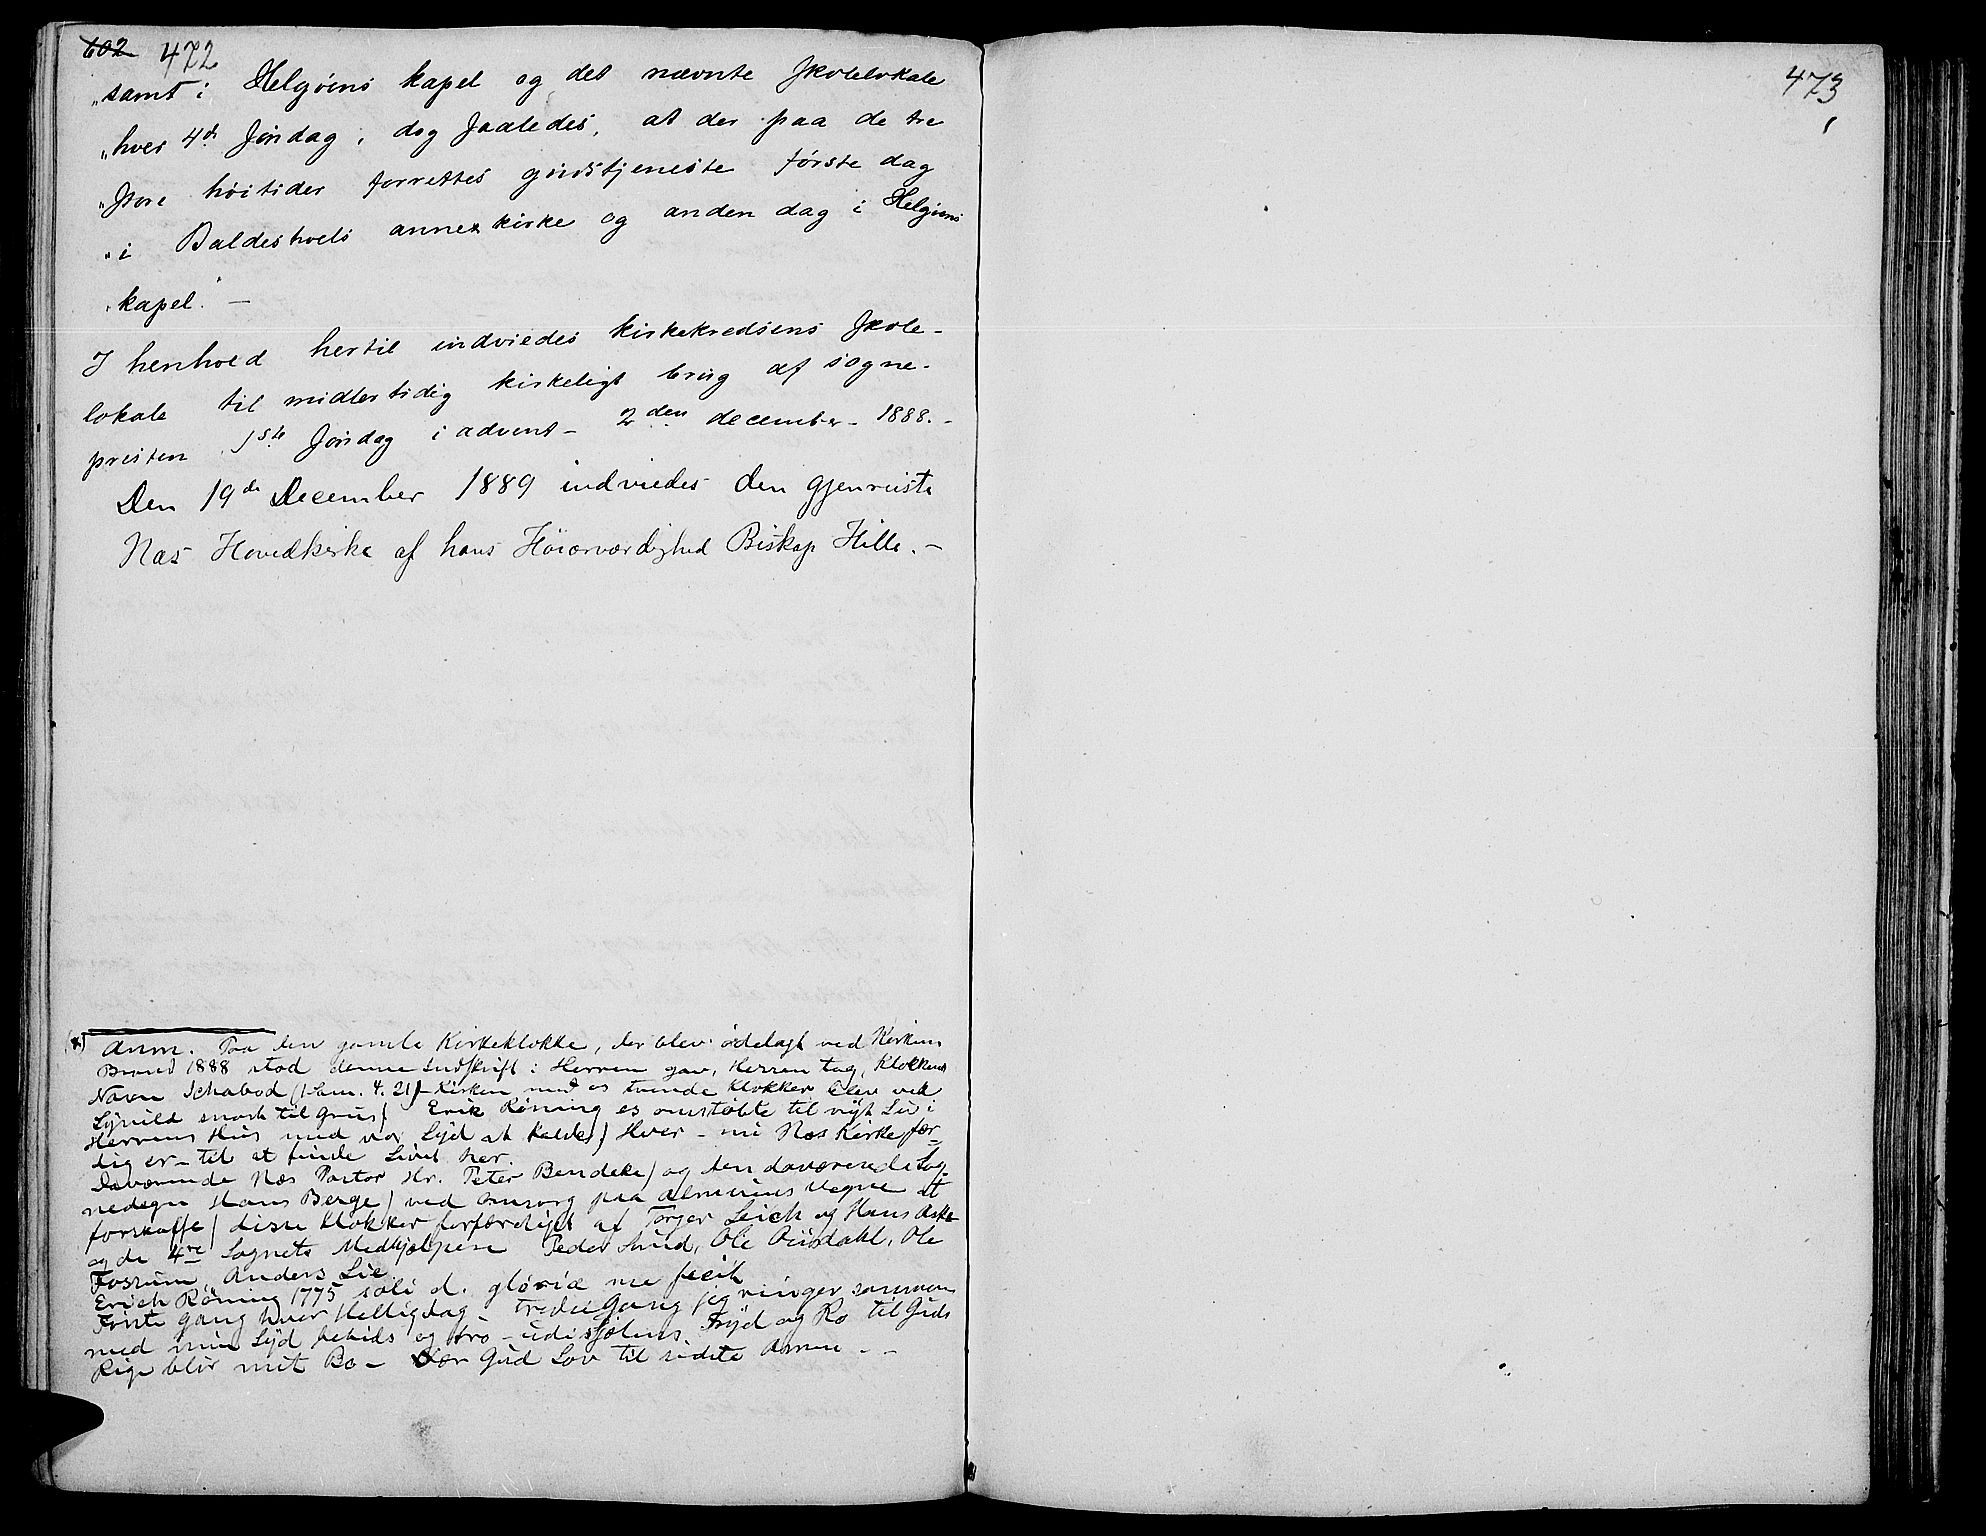 602 472
„samt i Helgøens kapel og det nævnte skolelokale
„hver 4de søndag, dog saaledes, at der paa de tre
„store høitider forrettes gudstjeneste første dag
„i Baldeshvols annexkirke og anden dag i Helgøens
„kapel." —
I henhold hertil indviedes kirkekredsens skole-
lokale til midlertidig kirkeligt brug af sogne-
presten 1ste søndag i advent - 2den december - 1888. -
Den 19de December 1889 indviedes den gjenreiste
Næs Hovedkirke af hans Høiærværdighed Biskop Hille. -
(*) Anm. Paa den gamle Kirkeklokke, der blev ødelagt ved Kirkens
Brand 1888 stod denne Indskrift: Herren gav, Herren tog, Klokkens
Navn Ichabod (1 Sam. 4. 21) - Kirken med os tvende Klokker blev ved
Lynild smork til grus / Erik Røning os omstøbte til nyt Liv i
Herrens Hus med vor Lyd at kalde / Hver - nu Næs Kirke fær-
dig er - til at finde Livet her.
Daværende Næs Pastor Hr. Peter Bendeke / og den daværende Sog-
nedegn Hans Berge / ved omsorg paa Almuens Vegne at
forskaffe / disse Klokker forfærdiget af Torger Leich og Hans Aske
og de 4re Sognets Medhjælpere Peder Sund, Ole Ourdahl, Ole
Fossum, Anders Lie
Erich Røning 1775 soli d. gloriæ me fecit
Første Gang hver Helligdag tredie Gang jeg ringer sammen
med min Lyd bebuds og tro - udi Sjælens Fryd og Ro til Guds
Rige blir mit Bo - Vær Gud Lov til sidste Amen. -
473